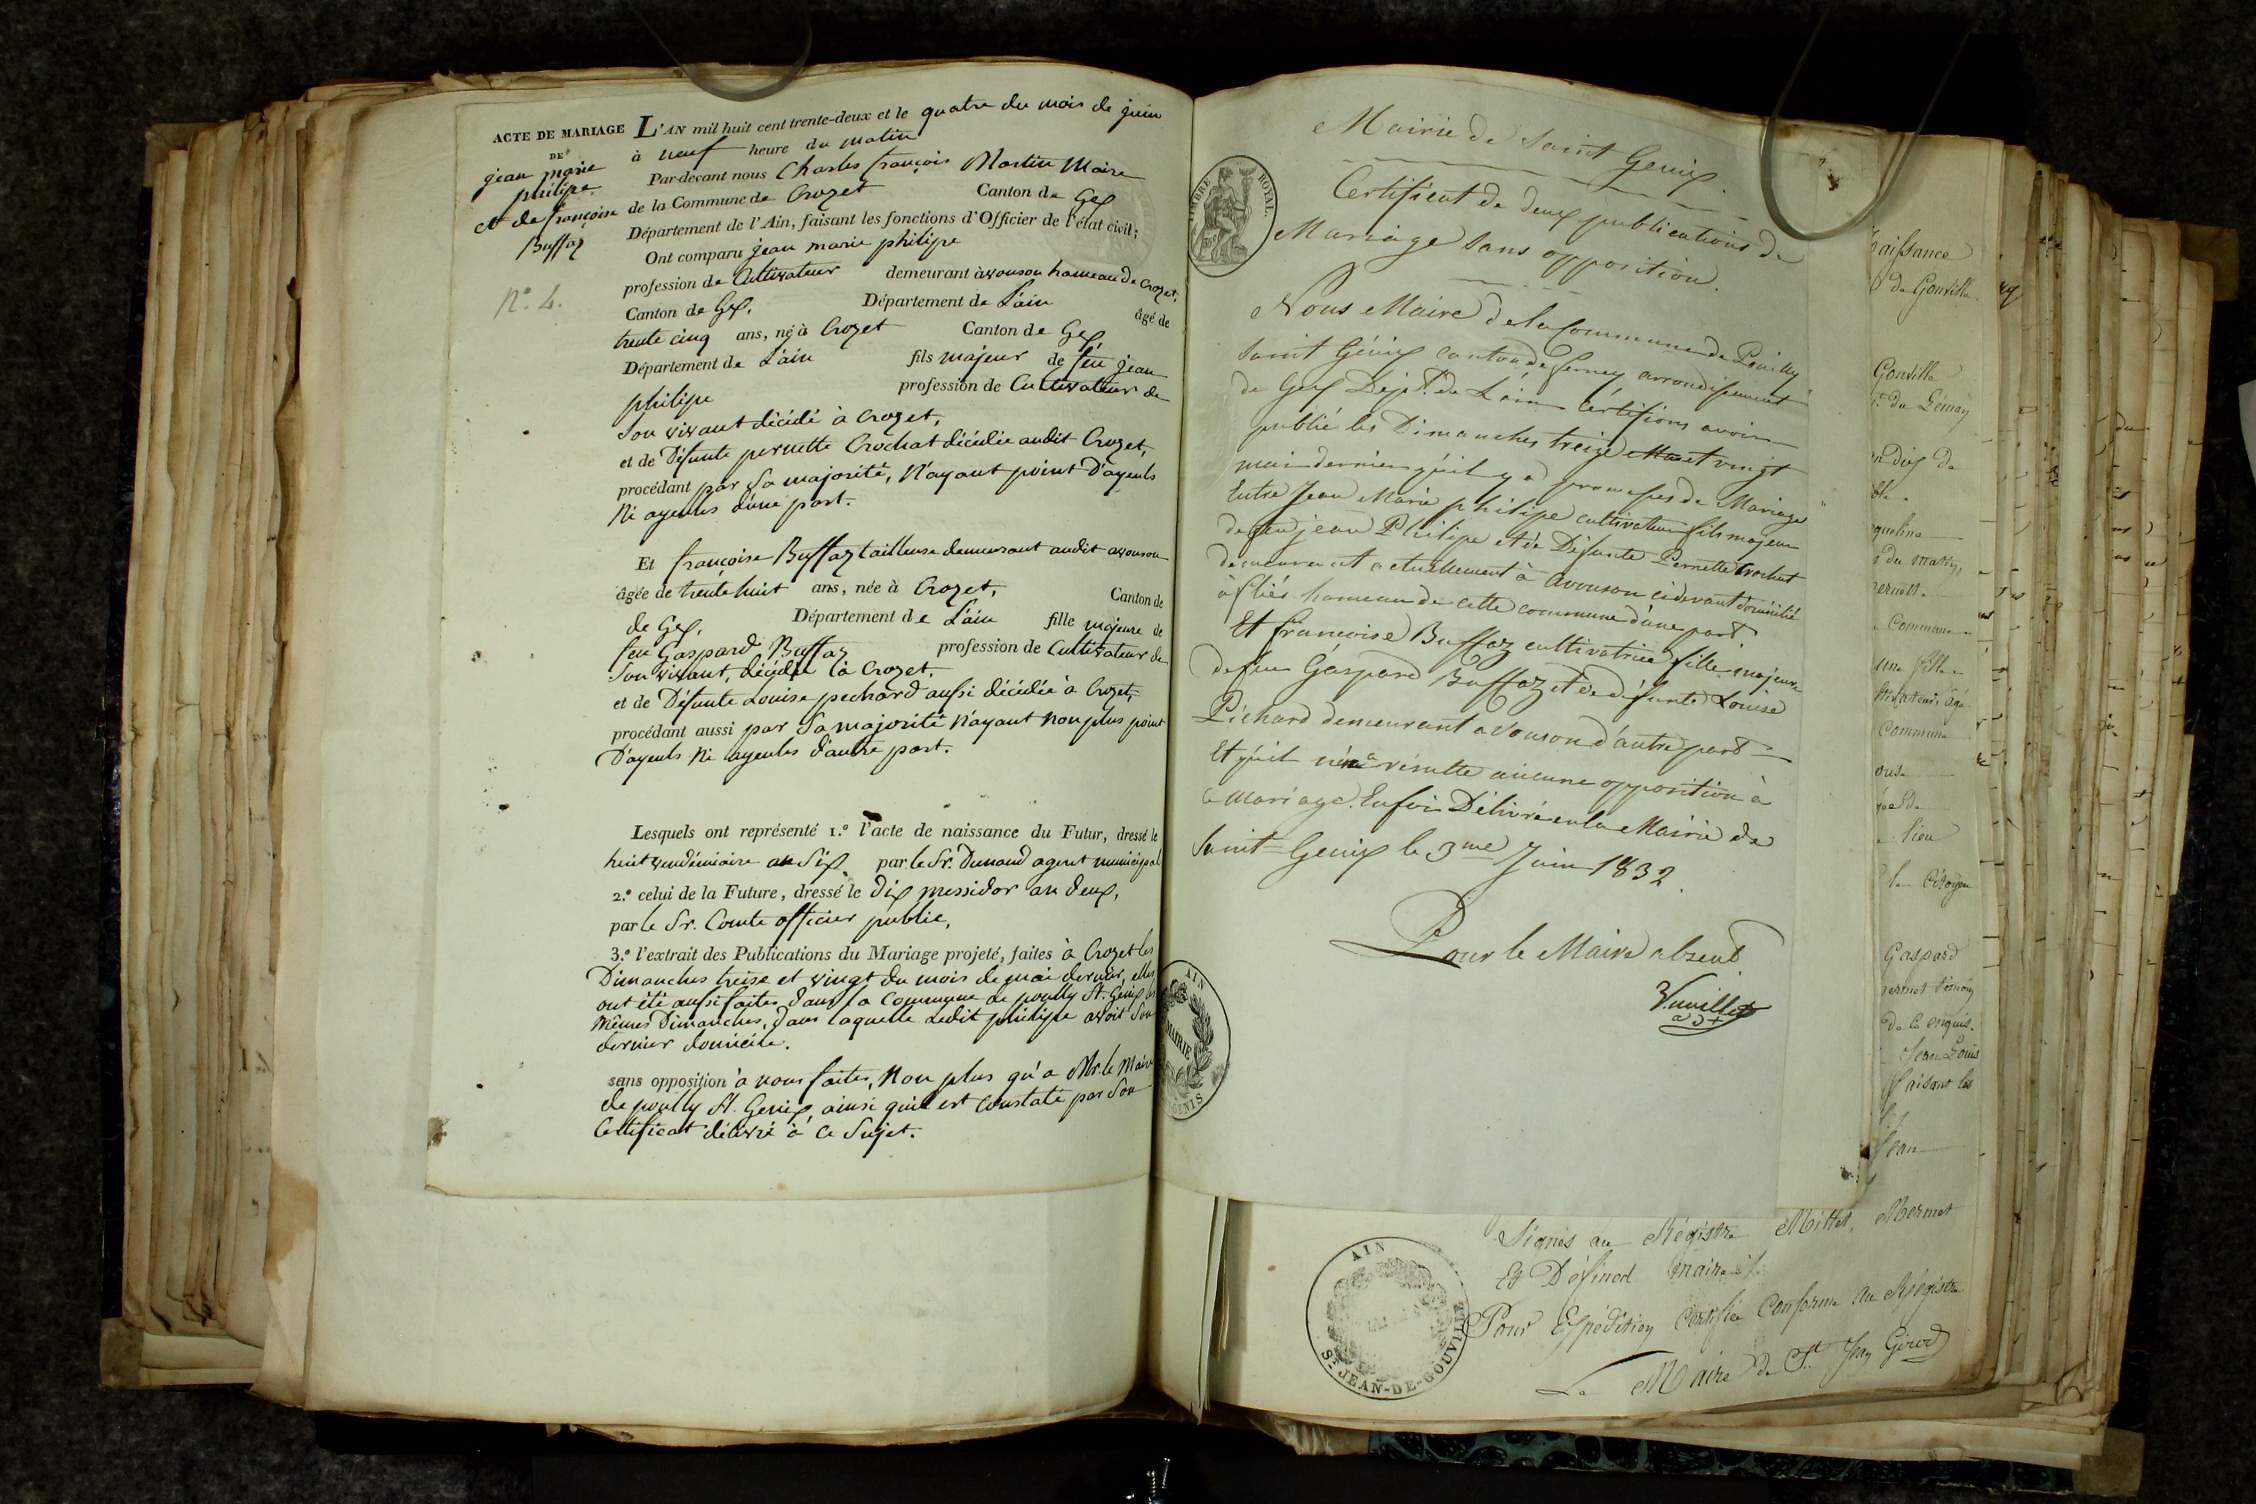 ACTE DE MARIAGE
DE
jean marie
philipe
et de françoise
Buffaz
N.º 4.
L'AN mil huit cent trente-deux et le quatre du mois de juin
à neuf heure du matin
Par-devant nous Charles françois Martin Maire
de la Commune de Crozet Canton de Gex
Département de l'Ain, faisant les fonctions d'Officier de l'état civil;
Ont comparu jean marie philipe
profession de Cultivateur demeurant à avouson hameau de Crozet,
Canton de Gex, Département de L'ain âgé de
trente cinq ans, né à Crozet Canton de Gex
Département de L'ain fils majeur de feu jean
philipe profession de Cultivateur de
Son vivant décédé à Crozet,
et de Défunte pernette Crochat décédée audit Crozet,
procédant par Sa majorité, N'ayant point D'ayeuls
Ni ayeules d'une part.
Et françoise Buffaz tailleuse demeurant audit avouson
âgée de trente huit ans, née à Crozet, Canton de
de Gex, Département de L'ain fille majeure de
feu Gaspard Buffaz profession de Cultivateur de
Son vivant, décédé à Crozet,
et de Défunte Louise pechard aussi décédée à Crozet,
procédant aussi par Sa majorité N'ayant Non plus point
D'ayeuls Ni ayeules d'autre part.
Lesquels ont représenté 1.º l'acte de naissance du Futur, dressé le
huit vendémiaire an Six par le Sr. Dunand agent municipal
2.º celui de la Future, dressé le dix messidor an deux,
par le Sr. Comte officier public,
3.º l'extrait des Publications du Mariage projeté, faites à Crozet les
Dimanches treise et vingt du mois de mai dernier, elles
ont été aussi faites dans la Commune de pouilly St. Genix les
mêmes Dimanches, dans laquelle Ledit philipe avoit Son
dernier domicile.
sans opposition à nous faites, Non plus qu'a Mr. le Maire
de pouilly St. Genix, ainsi qu'il est Constaté par Son
Certificat délivré à ce Sujet.
Mairie de Saint Genix.
TIMBRE ROYAL.
Certificat de deux publications de
Mariage sans opposition.
Nous Maire de la Commune de Pouilly
Saint Génix canton de ferney arrondissement
de Gex Dépt. de L'ain Certifions avoir
publié les Dimanches treize et vingt
mai dernier qu'il y a promesses de Mariage
Entre Jean Marie philipe cultivateur fils majeur
de feu jean Philipe et de Défunte Pernette Crochat
demeurant actuellement à Avouson cidevant domicilié
à fliés hameau de cette commune d'une part
Et francoise Buffaz cultivatrice fille majeure
de feu Gaspard Buffaz et de défunte Louise
Pichard demeurant a Vouson d'autre part
Et qu'il n'en résulte aucune opposition à
ce Mariage. En foi Délivré en la Mairie de
Saint=Genix le 3me Juin 1832.
Pour le Maire absent
Vuaillet
adjt
AIN
MAIRIE
GENIS
Naissance
de Gonville
Gonville
du Léman
Commune
une fille
Commune
lieu
le Citoyen
Gaspard
Jean Louis
faisant les
Jean
Signés au Régistre Millet, Mermet
Et Défined maire
Pour Expédition Certifiée Conforme au Régistre
Le Maire de St. Jean Girod
AIN
ST JEAN-DE-GOUVILLE